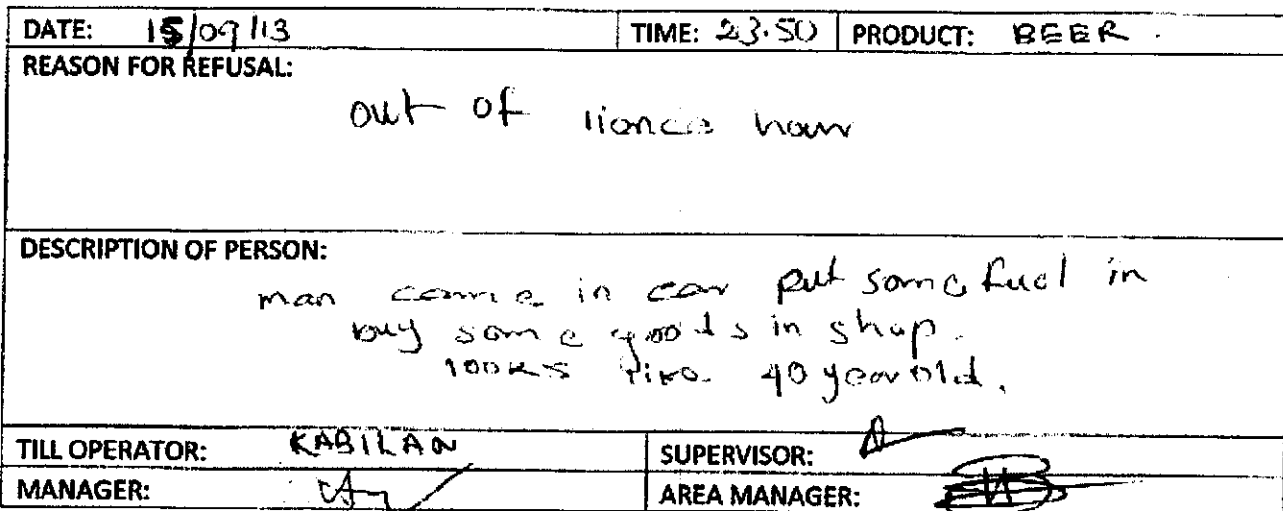 DATE: 15/09/13 TIME: 23.50 PRODUCT: BEER.
REASON FOR REFUSAL:
out of hour
DESCRIPTION OF PERSON:
man came in car put some fuel in
buy some goods in shop.
looks 40 year old.
TILL OPERATOR: KABILAN SUPERVISOR:
MANAGER: AREA MANAGER: